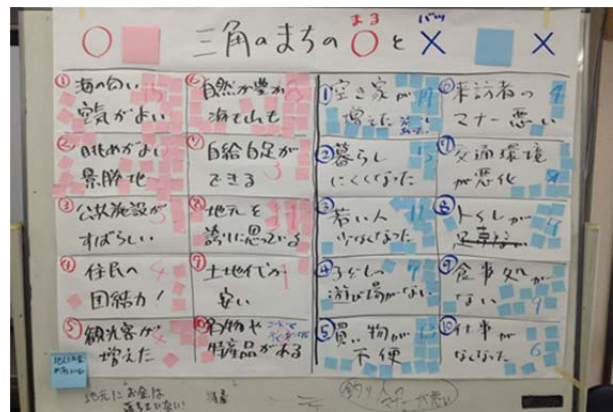 三角のまちの○と×
まる
バツ
①海の匂い
空気がよい
②眺めがよい
景勝地
③公共施設が
すばらしい
④住民の
団結力!
⑤観光客が
増えた
⑥自然が豊か
海も山も
⑦自給自足が
できる
3
⑧地元を
誇りに思っている
⑨土地代が
安い
1
⑩名物や
特産品がある
①空き家が
増えた
②暮らし
にくくなった
③若い人
少なくなった
④子どもの
遊び場がない
⑤買い物が
不便
⑥来訪者の
マナー悪い
⑦交通環境
が悪化
⑧トイレが
⑨食事処が
ない
9
⑩仕事が
なくなった
6
地元にお金は
落ちていない